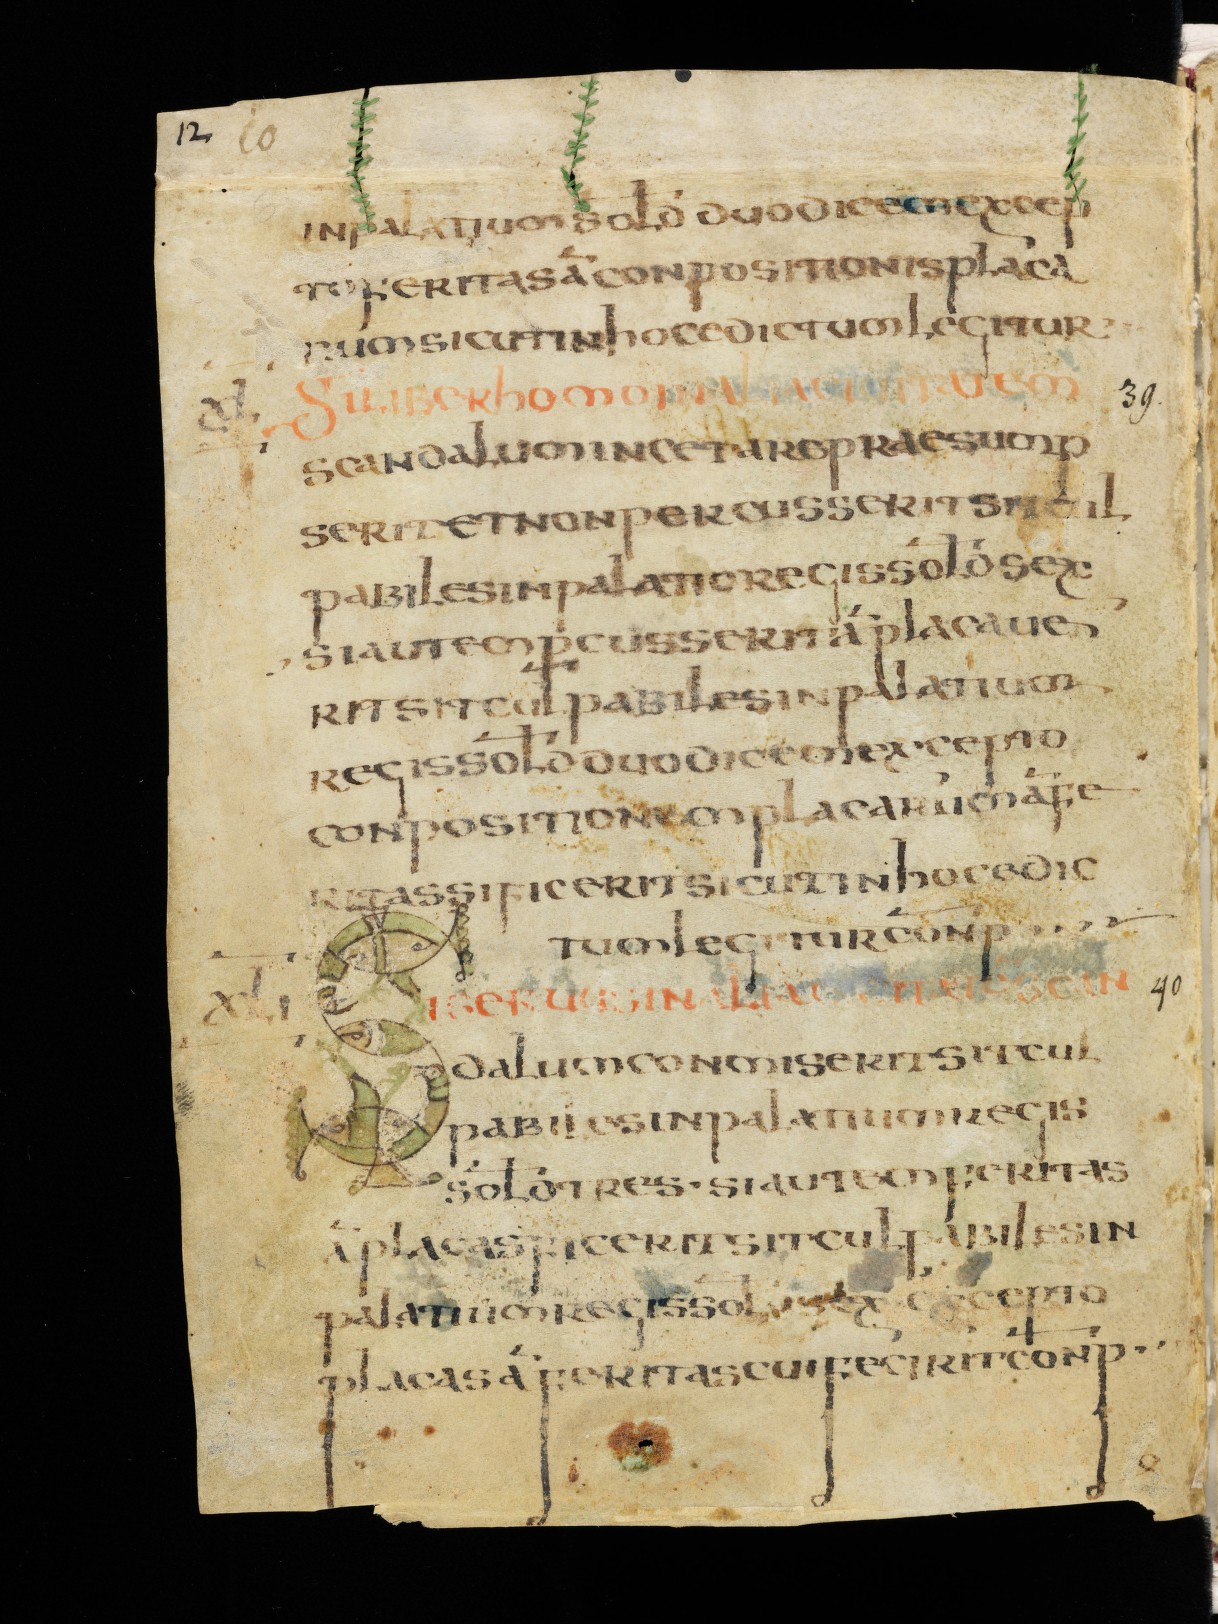 12 10
inpalatium sold duodicem excep
to feritas a conpositionis placa
rum sicut in hoc edictum legitur
xl Si liber homo in alia civitatem 39.
scandalum incetare praesump
serit et non percusserit sit cul
pabiles in palatio regis sold sex
si autem pcusserit a placave
rit sit culpabiles in palatium
regis sold duodicem excepto
conpositionem placarum a fe
ritas si ficerit sicut in hoc edic
tum legitur conp
xli Si servus in alia civitate scan 40
dalum conmiserit sit cul
pabiles in palatium regis
sold tres · si autem feritas
a placas ficerit sit culpabiles in
palatium regis sold sex excepto
placas a feritas cui fecirit conp